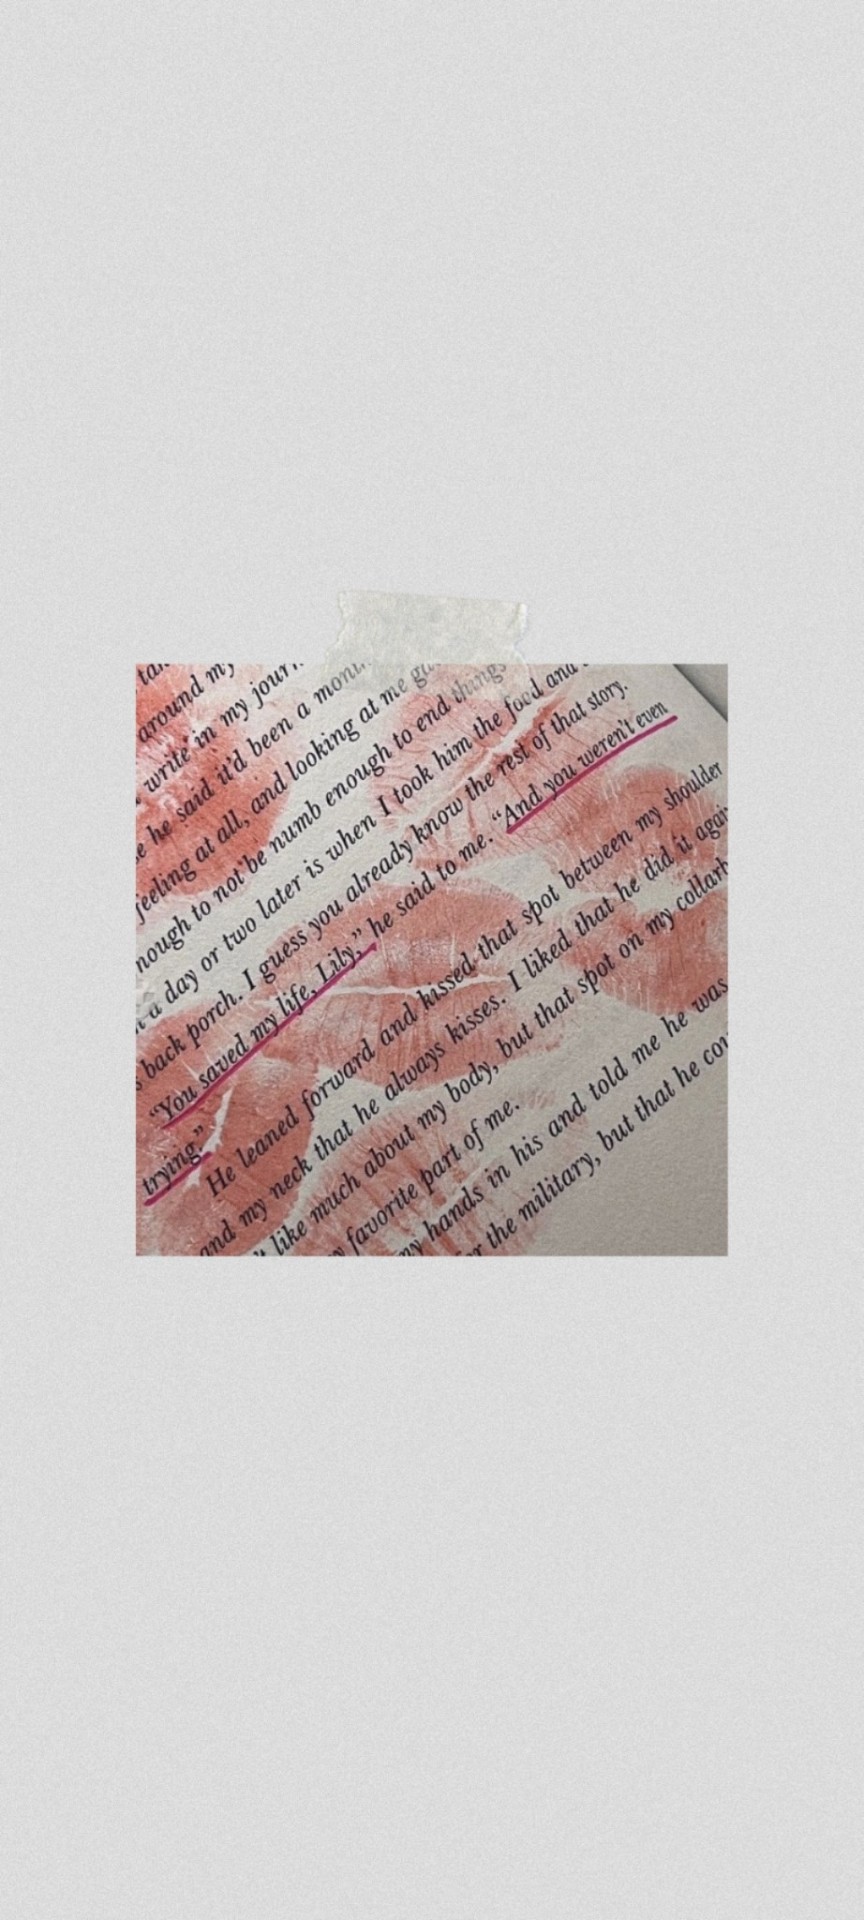 around my
write in my journ
he said it'd been a month
feeling at all, and looking at me
nough to not be numb enough to end things
a day or two later is when I took him the food and
back porch. I guess you already know the rest of that story.
“You saved my life, Lily,” he said to me. “And you weren't even
trying.”
He leaned forward and kissed that spot between my shoulder
and my neck that he always kisses. I liked that he did it again
't like much about my body, but that spot on my collarb
my favorite part of me.
my hands in his and told me he was
the military, but that he cou